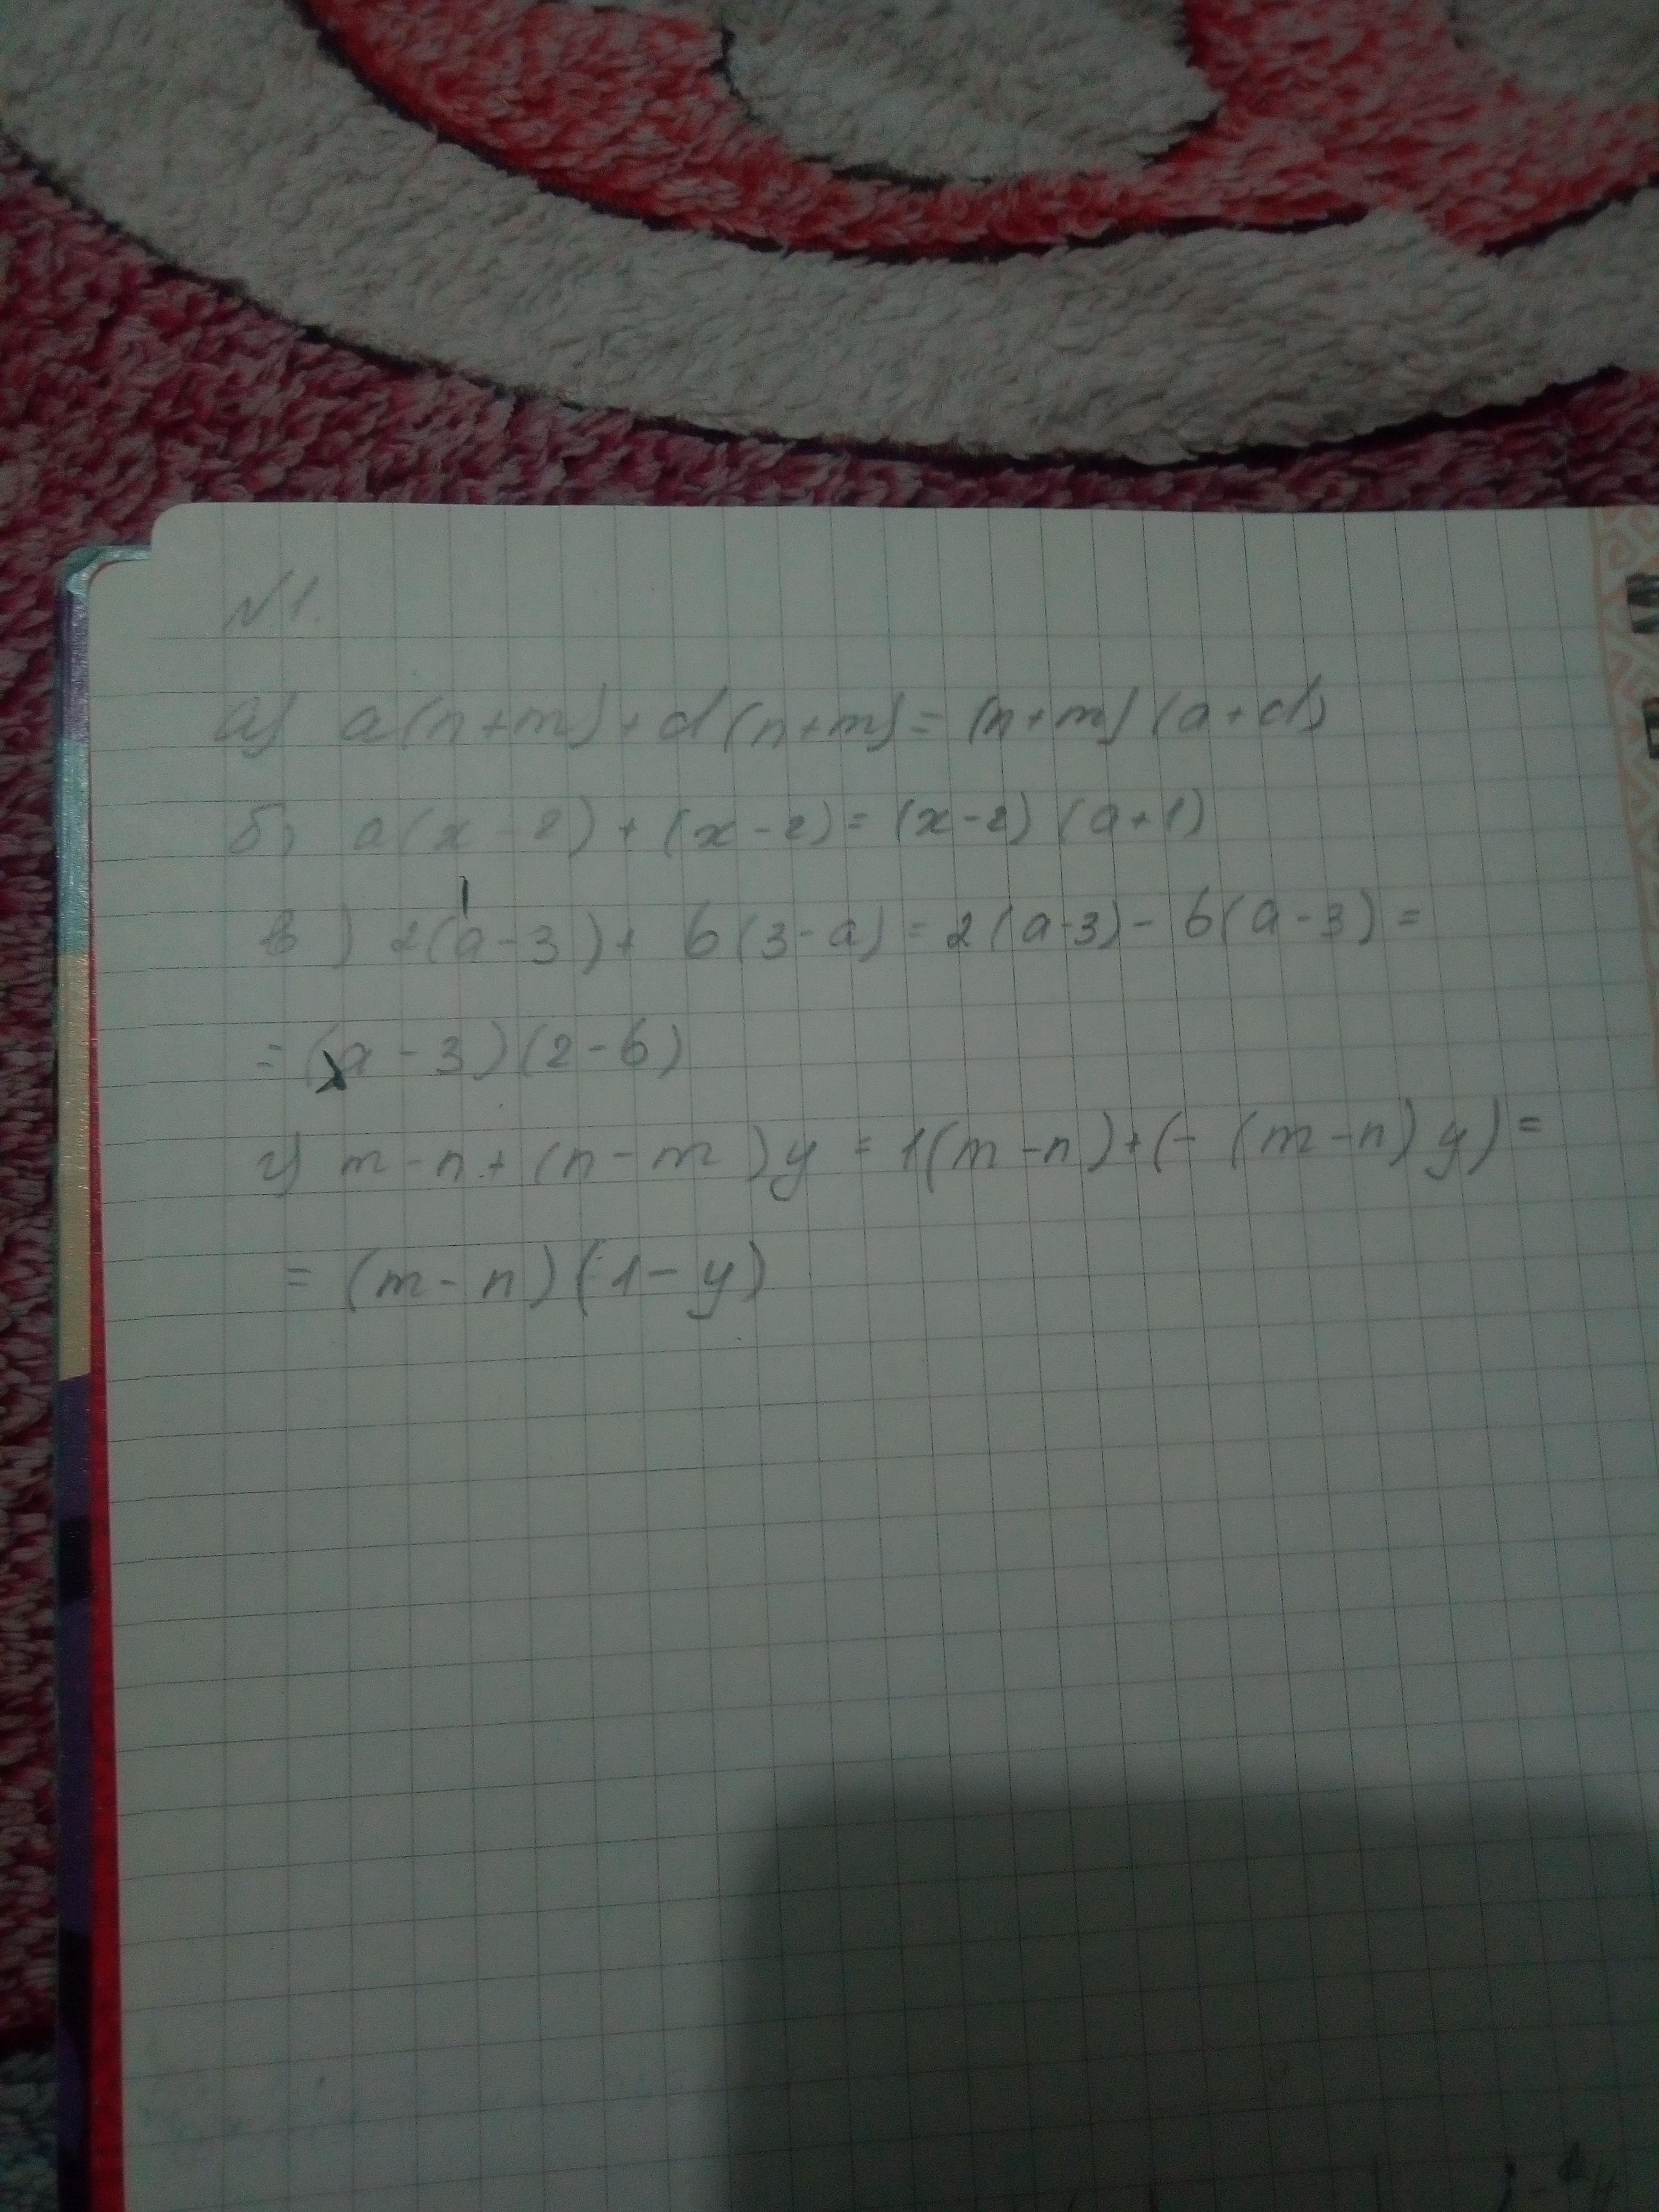 №1.
а) a(n+m)+d(n+m)=(n+m)(a+d)
б) a(x-2)+(x-2)=(x-2)(a+1)
в) 2(a-3)+b(3-a)=2(a-3)-b(a-3)=
=(a-3)(2-b)
г) m-n+(n-m)y=1(m-n)+(-(m-n)y)=
=(m-n)(1-y)